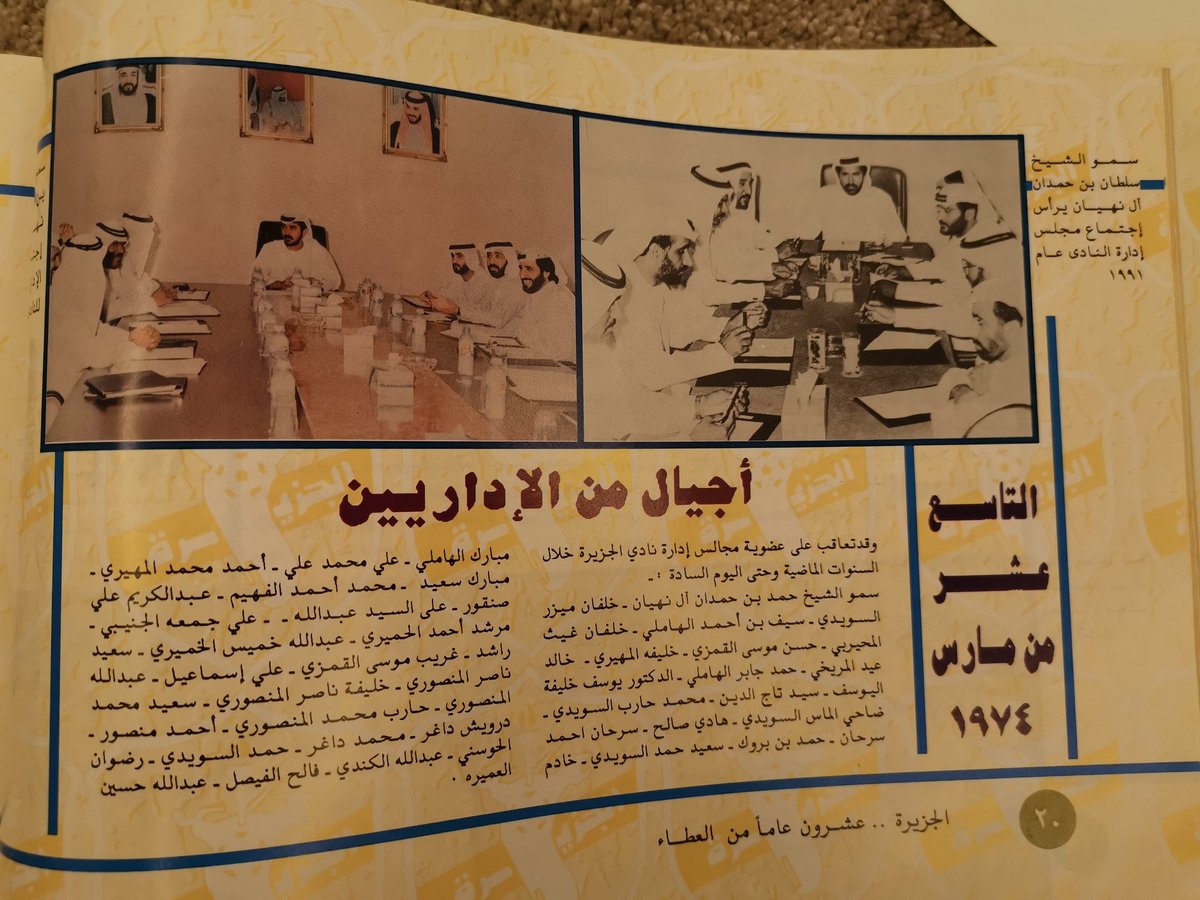 سمو الشيخ
سلطان بن حمدان
آل نهيان يرأس
إجتماع مجلس
إدارة النادى عام
١٩٩١
التاسع
عشر
من مارس
١٩٧٤
أجيال من الإداريين
وقدتعاقب على عضوية مجالس إدارة نادي الجزيرة خلال
السنوات الماضية وحتى اليوم السادة : ـ
سمو الشيخ حمد بن حمدان آل نهيان ـ خلفان ميزر
السويدي ـ سيف بن أحمد الهاملي ـ خلفان غيث
المحيربي ـ حسن موسى القمزي ـ خليفه المهيري ـ خالد
عيد المريخي ـ حمد جابر الهاملي ـ الدكتور يوسف خليفة
اليوسف ـ سيد تاج الدين ـ محمد حارب السويدي ـ
ضاحي الماس السويدي ـ هادي صالح ـ سرحان احمد
سرحان ـ حمد بن بروك ـ سعيد حمد السويدي ـ خادم
مبارك الهاملي ـ علي محمد علي ـ أحمد محمد المهيري ـ
مبارك سعيد ـ محمد أحمد الفهيم ـ عبدالكريم علي
صنقور ـ على السيد عبدالله ـ ـ علي جمعه الجنيبي ـ
مرشد أحمد الحميري ـ عبدالله خميس الخميري ـ سعيد
راشد ـ غريب موسى القمزي ـ علي إسماعيل ـ عبدالله
ناصر المنصوري ـ خليفة ناصر المنصوري ـ سعيد محمد
المنصوري ـ حارب محمد المنصوري ـ أحمد منصور ـ
درويش داغر ـ محمد داغر ـ حمد السويدي ـ رضوان
الحوسني ـ عبدالله الكندي ـ فالح الفيصل ـ عبدالله حسين
العميره .
الجزيرة .. عشرون عاماً من العطاء
٢٠